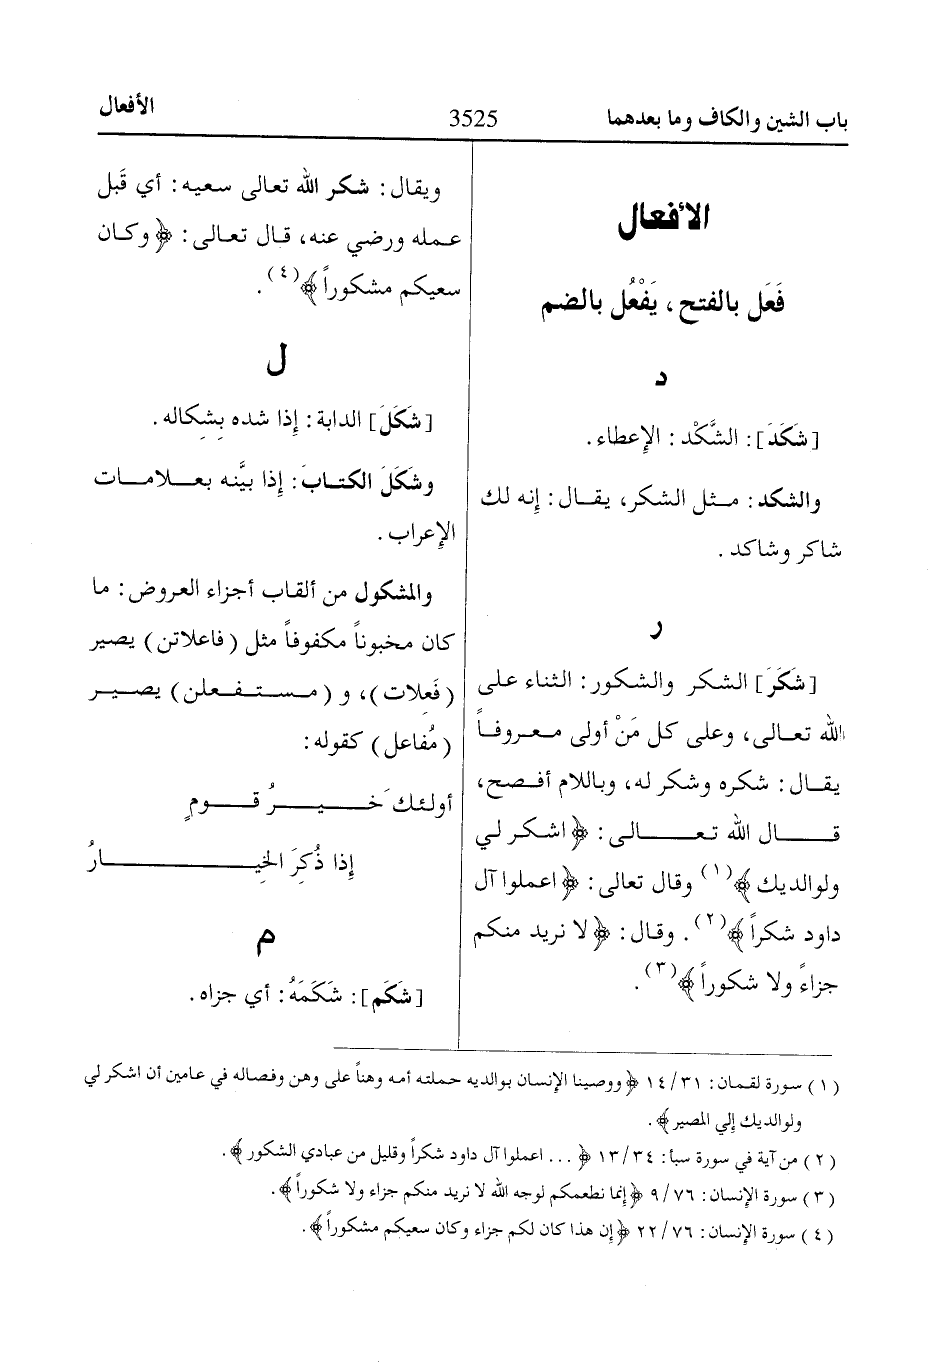 باب الشين والكاف وما بعدهما
3525
الأفعال
الأفعال
فَعَل بالفتح، يَفْعُل بالضم
د
[شَكَدَ]: الشَّكْد: الإعطاء.
والشكد: مثل الشكر، يقال: إنه لك
شاكر وشاكد.
ر
[شَكَرَ] الشكر والشكور: الثناء على
الله تعالى، وعلى كل مَنْ أولى معروفاً
يقال: شكره وشكر له، وباللام أفصح،
قال الله تعالى: ﴿اشكر لي
ولوالديك﴾(١) وقال تعالى: ﴿اعملوا آل
داود شكراً﴾(٢). وقال: ﴿لا نريد منكم
جزاءً ولا شكوراً﴾(٣).
ويقال: شكر الله تعالى سعيه: أي قَبِل
عمله ورضي عنه، قال تعالى: ﴿وكان
سعيكم مشكوراً﴾(٤).
ل
[شَكَلَ] الدابة: إذا شده بشِكاله.
وشكَلَ الكتابَ: إذا بيَّنه بعلامات
الإعراب.
والمشكول من ألقاب أجزاء العروض: ما
كان مخبوناً مكفوفاً مثل (فاعلاتن) يصير
(فَعِلات)، و(مستفعلن) يصير
(مُفاعل) كقوله:
أولئكَ خيرُ قومٍ
إذا ذُكِرَ الخِيارُ
م
[شَكَم]: شَكَمَهُ: أي جزاه.
(١) سورة لقمان: ١٤/٣١ ﴿ووصينا الإنسان بوالديه حملته أمه وهناً على وهن وفصاله في عامين أن اشكر لي
ولوالديك إلي المصير﴾.
(٢) من آية في سورة سبأ: ١٣/٣٤ ﴿... اعملوا آل داود شكراً وقليل من عبادي الشكور﴾.
(٣) سورة الإنسان: ٩/٧٦ ﴿إنما نطعمكم لوجه الله لا نريد منكم جزاء ولا شكوراً﴾.
(٤) سورة الإنسان: ٢٢/٧٦ ﴿إن هذا كان لكم جزاء وكان سعيكم مشكوراً﴾.